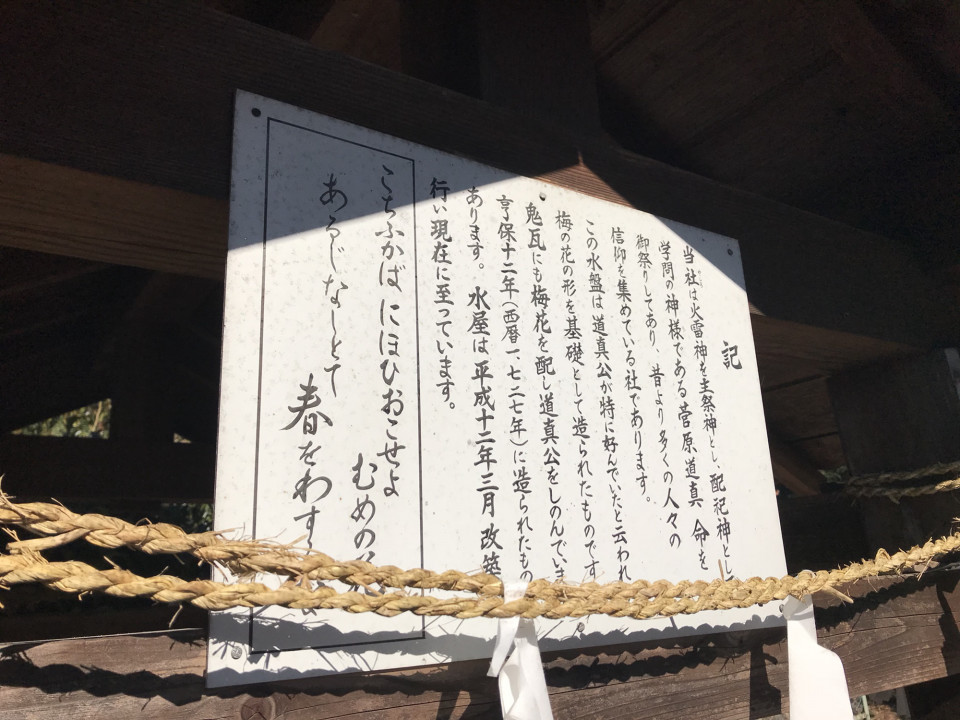 記
当社は火雷神を主祭神とし、配祀神とし
学問の神様である菅原道真 命を
御祭りしてあり、昔より多くの人々の
信仰を集めている社であります。
この水盤は道真公が特に好んでいたと云われ
梅の花の形を基礎として造られたものです
鬼瓦にも梅花を配し道真公をしのんでいま
亨保十二年(西暦一、七二七年)に造られたもの
あります。水屋は平成十二年三月改築
行い現在に至っています。
こちふかば にほひおこせよ むめの
あるじなしとて 春をわす